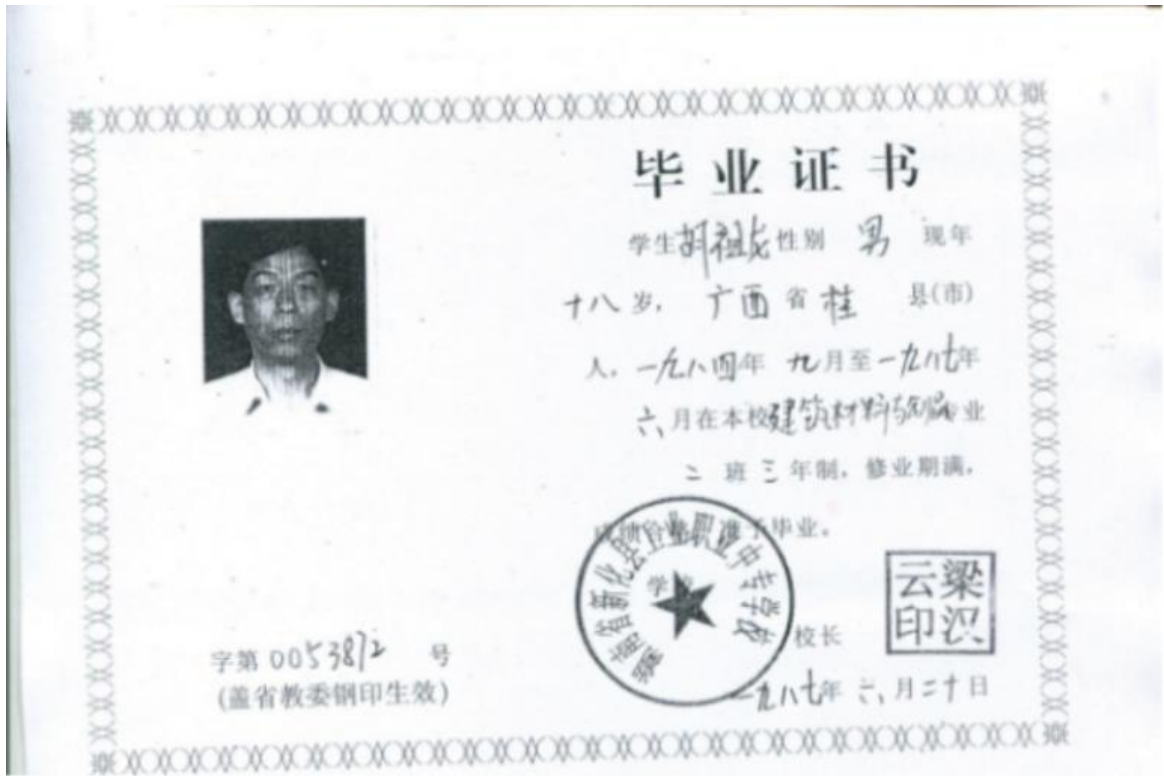 毕业证书
学生胡祖龙性别 男 现年
十八岁，广西省桂 县(市)
人，一九八四年 九月至一九八七年
六月在本校建筑材料与制品专业
二 班 三 年制，修业期满，
成绩合格准予毕业。
学校
湖南省新化县行业职业中专学校
校长
梁沢云印
一九八七年 六月二十日
字第 0053872 号
(盖省教委钢印生效)